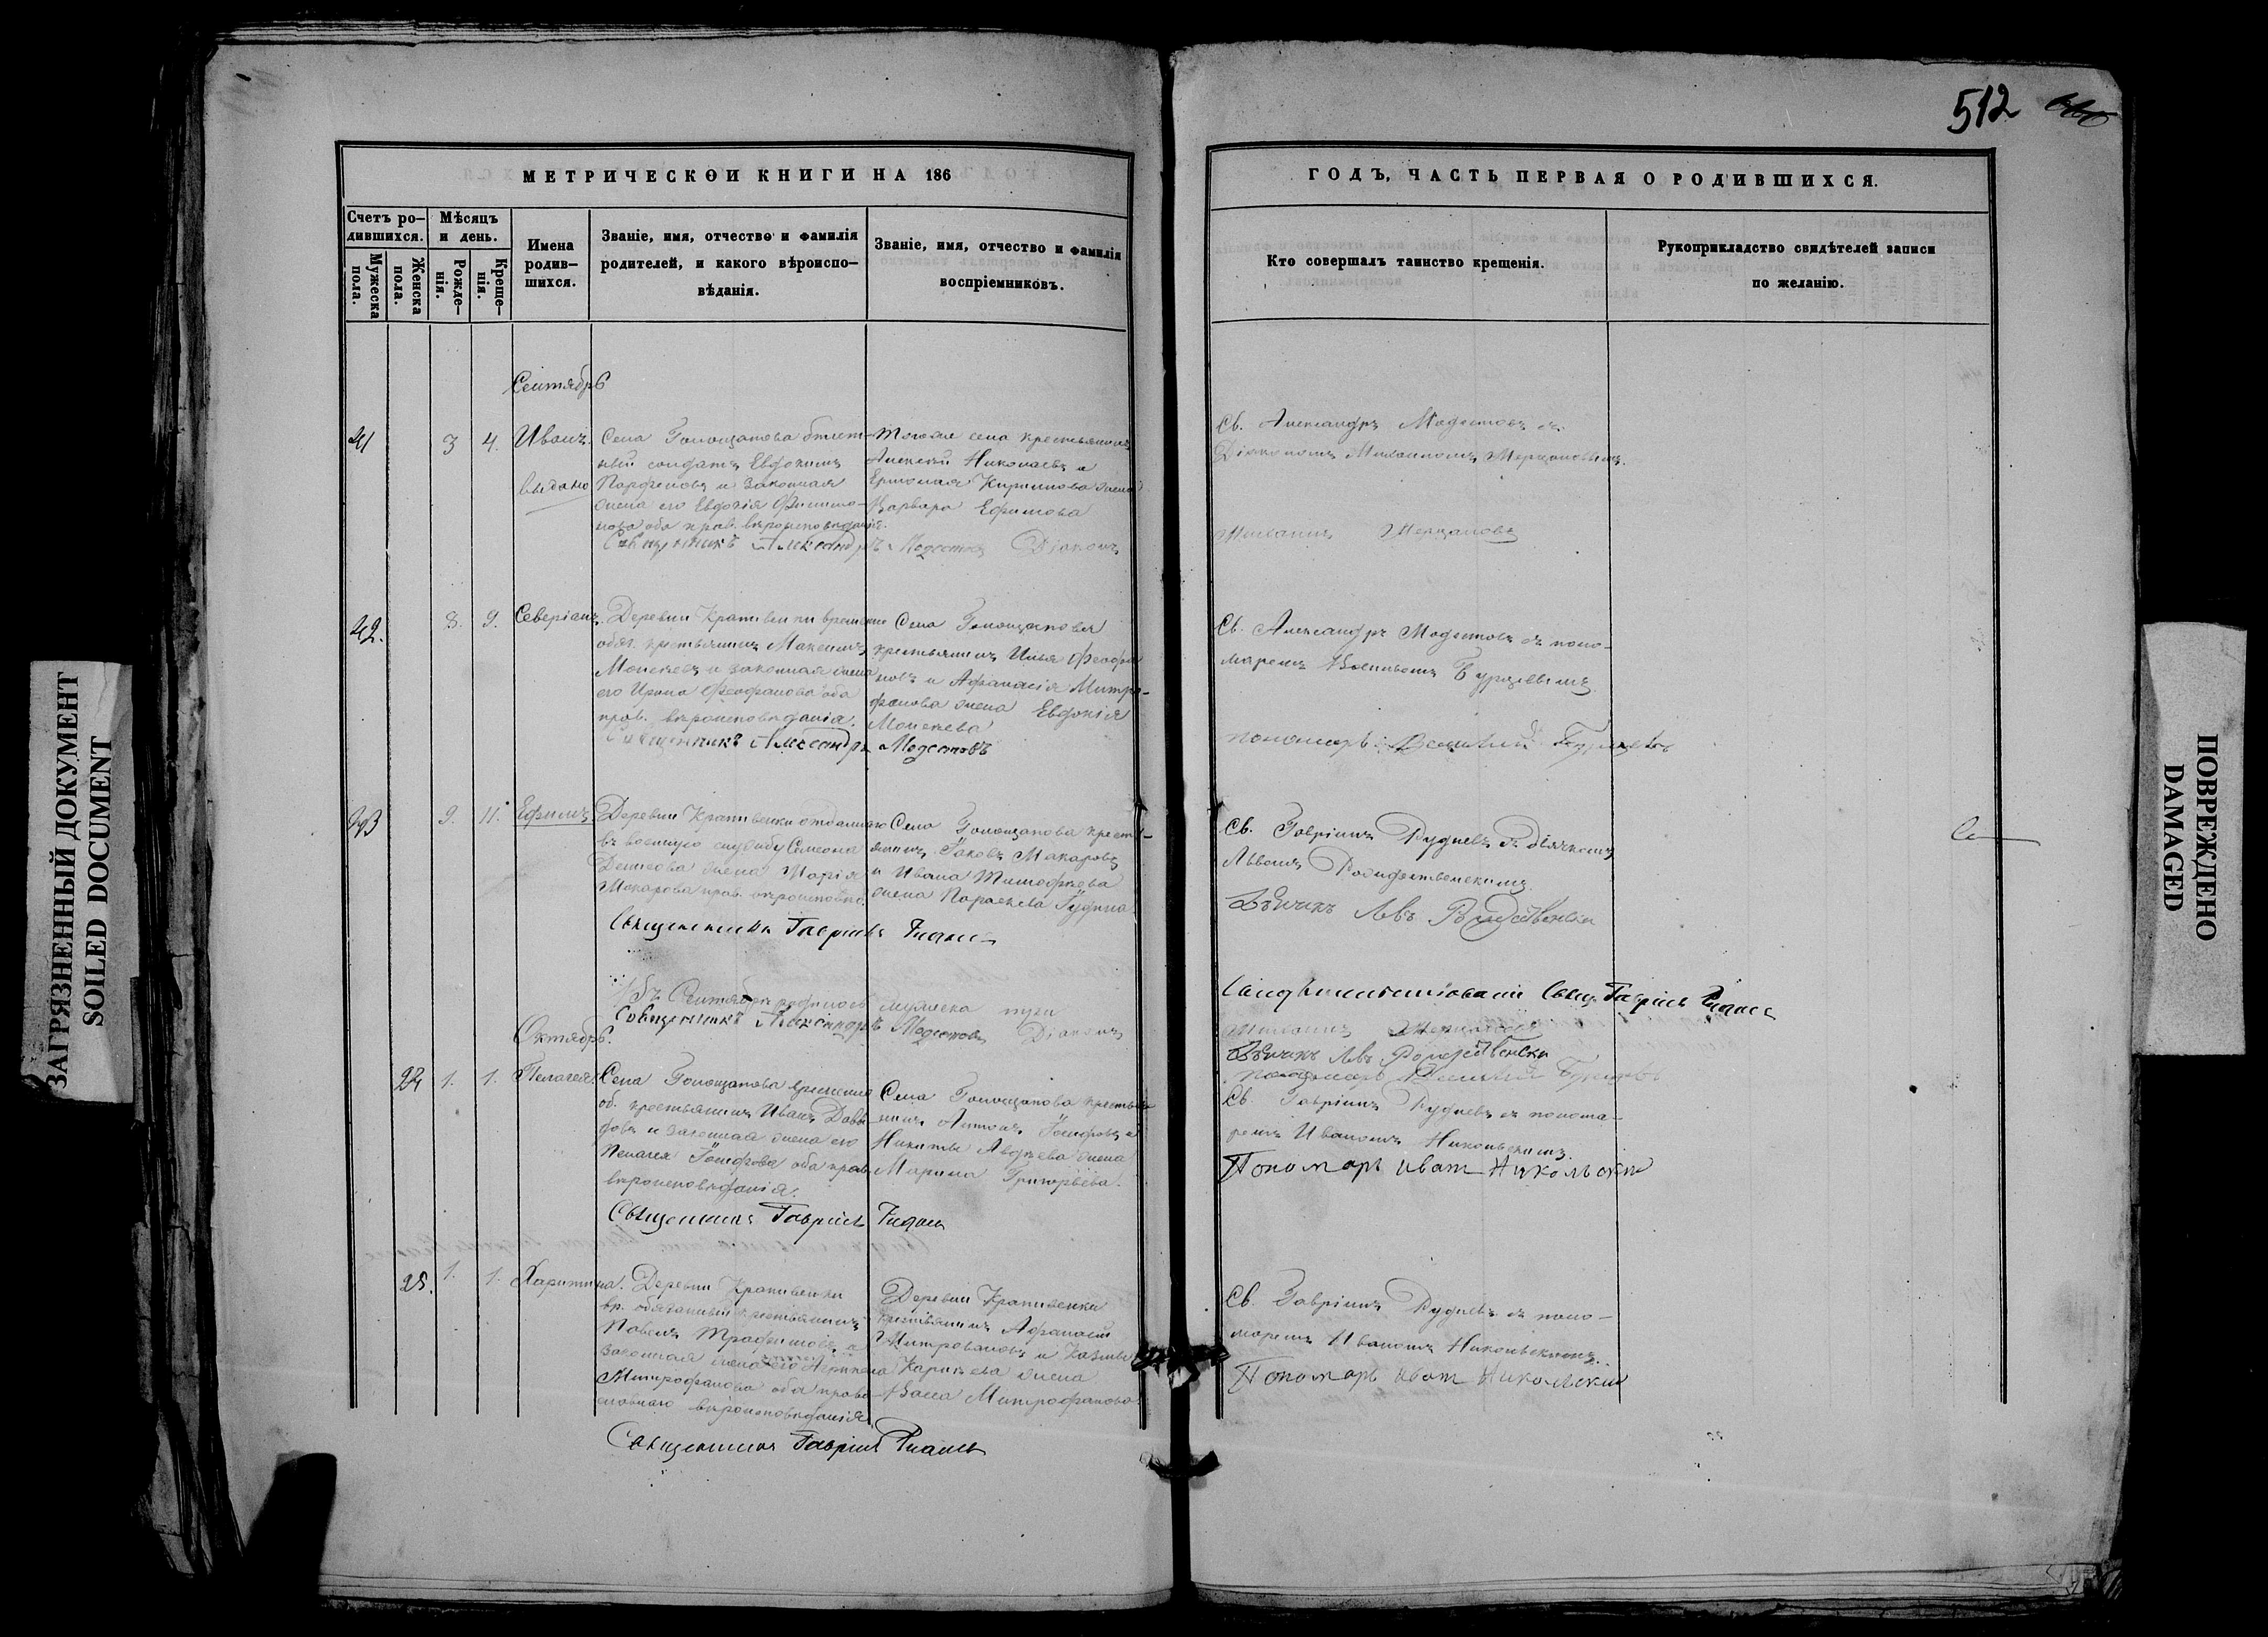 512
МЕТРИЧЕСКОЙ КНИГИ НА 186
ГОДЪ, ЧАСТЬ ПЕРВАЯ О РОДИВШИХСЯ.
Счетъ ро-
дившихся.
Мужеска
пола.
Женска
пола.
Мѣсяцъ
и день.
Рожде-
нія.
Креще-
нія.
Имена
родив-
шихся.
Званіе, имя, отчество и фамилія
родителей, и какого вѣроиспо-
вѣданія.
Званіе, имя, отчество и фамилія
воспріемниковъ.
Кто совершалъ таинство крещенія.
Рукоприкладство свидѣтелей записи
по желанію.
Сентябрь
41
3
4.
Иванъ.
выдано
Села Голощапова
солдатъ Евдокимъ
Парфеновъ и законная
жена его Евдокія
оба прав. вѣроисповѣданія.
Священникъ Александръ Модестовъ Діаконъ
Тогоже села крестьянинъ
Алексѣй Николаевъ и
Кирилова жена
Варвара Ефимова
Св. Александръ Модестовъ съ
Діакономъ Михаиломъ Мерцаловымъ.
Михаилъ Мерцаловъ
42.
8.
9.
Северіанъ.
Деревни Крапивенки временно
обяз. крестьянинъ Максимъ
и законная жена
его Ирина Феофанова оба
прав. вѣроисповѣданія.
Священникъ Александръ Модестовъ
Села Голощапова
крестьянинъ Илья Феофа
новъ и Афанасія Митро-
фанова жена Евдокія
Св. Александръ Модестовъ съ поно-
маремъ Василіемъ Бурцевымъ.
пономарь Василій Бурцевъ
43
9.
11.
Ефимъ.
Деревни Крапивенки отданнаго
въ военную службу Симеона
жена Марія
Макарова прав. вѣроисповѣд.
Села Голощапова крестья-
нинъ Іаковъ Макаровъ
и Ивана Тимофѣева
жена Параскева
Священникъ Гавріилъ
Св. Гавріилъ Рудневъ съ дьячкомъ
Львомъ Рождественскимъ.
Дьячокъ Левъ Рождественскій
Въ Сентябрѣ родилось мужеска три
Священникъ Александръ Модестовъ Діаконъ
Сви. Гавріилъ
Михаилъ Мерцаловъ
Дьячокъ Левъ Рождественскій
пономарь Василій Бурцевъ
Октябрь.
24
1.
1.
Пелагея.
Села Голощапова временно
об. крестьянинъ Иванъ Давы-
довъ и законная жена его
Пелагея Іосифова оба прав.
вѣроисповѣданія.
Священникъ Гавріилъ
Села Голощапова крестья
нинъ Антонъ Іосифовъ и
Никиты Авдѣева жена
Марина Григорьева.
Св. Гавріилъ Рудневъ съ понома-
ремъ Иваномъ Никольскимъ.
Пономарь Иванъ Никольскій
25.
1.
1.
Харитина.
Деревни Крапивенки
вр. обязанный крестьянинъ
Павелъ Трофимовъ и
законная жена его
Митрофанова оба право-
славнаго вѣроисповѣданія
Священникъ Гавріилъ
Деревни Крапивенки
крестьянинъ Афанасій
Митрофановъ и Козьмы
жена
Васса Митрофанова.
Св. Гавріилъ Рудневъ съ поно-
маремъ Иваномъ Никольскимъ.
Пономарь Иванъ Никольскій
ЗАГРЯЗНЕННЫЙ ДОКУМЕНТ
SOILED DOCUMENT
ПОВРЕЖДЕНО
DAMAGED